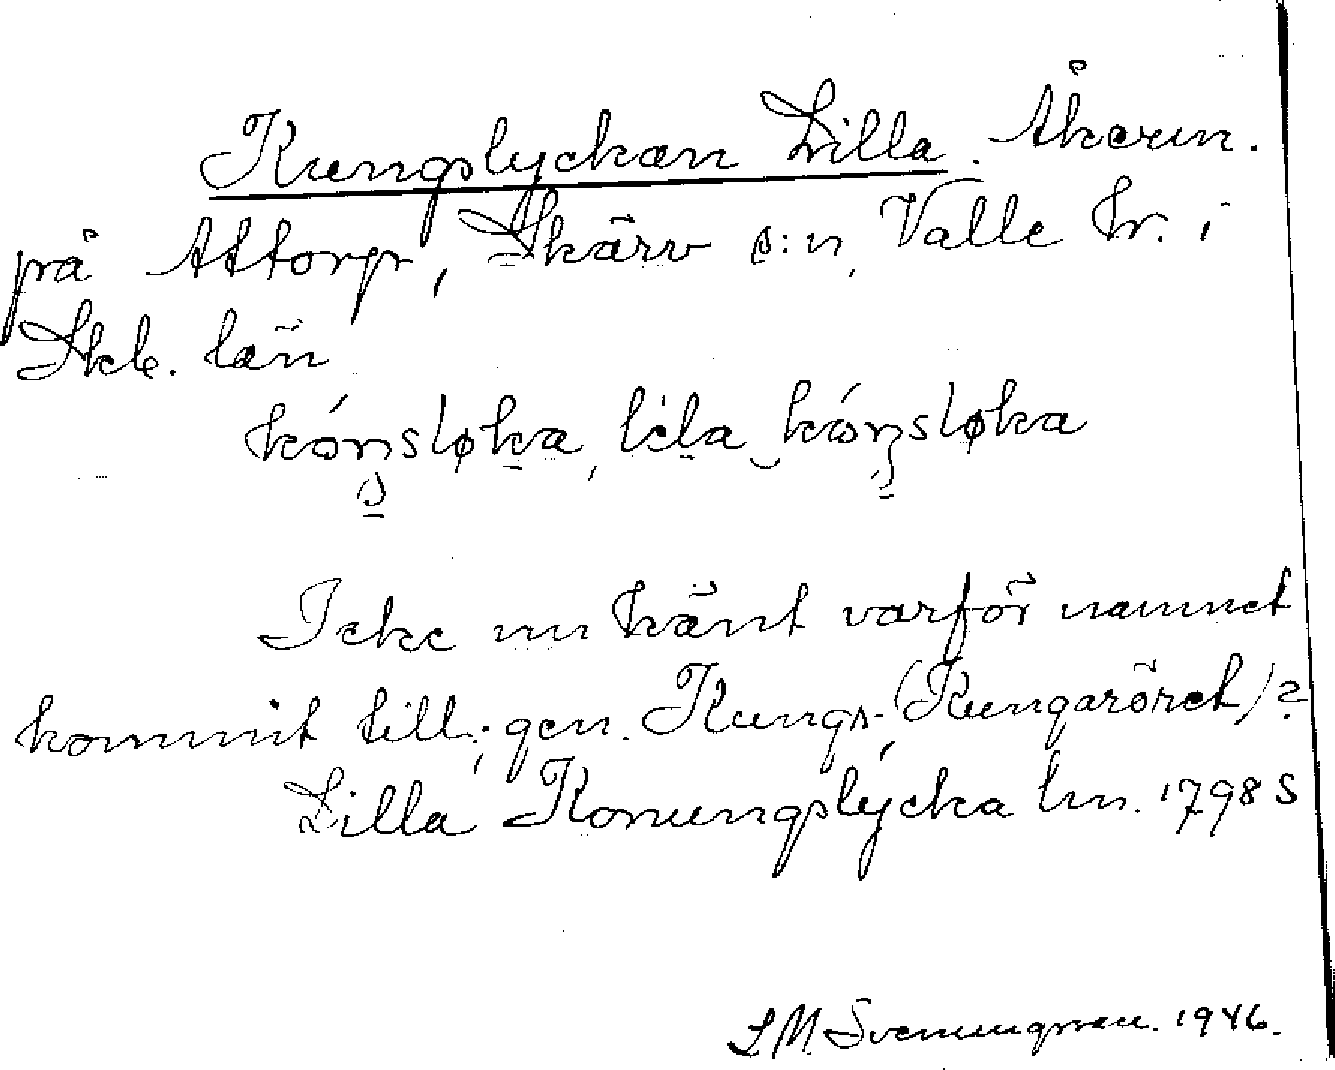 Kungslyckan Lilla. Åkern.
på Attorp, Skärv s:n, Valle hr. i
Skb. län
kóŋsløka, lila kóŋsløka
Icke nu känt varför namnet
kommit till; gen. Kungs- (Kungaröret)?
Lilla Konungslycka hn. 1798 S
S M Svenungsson. 1946.